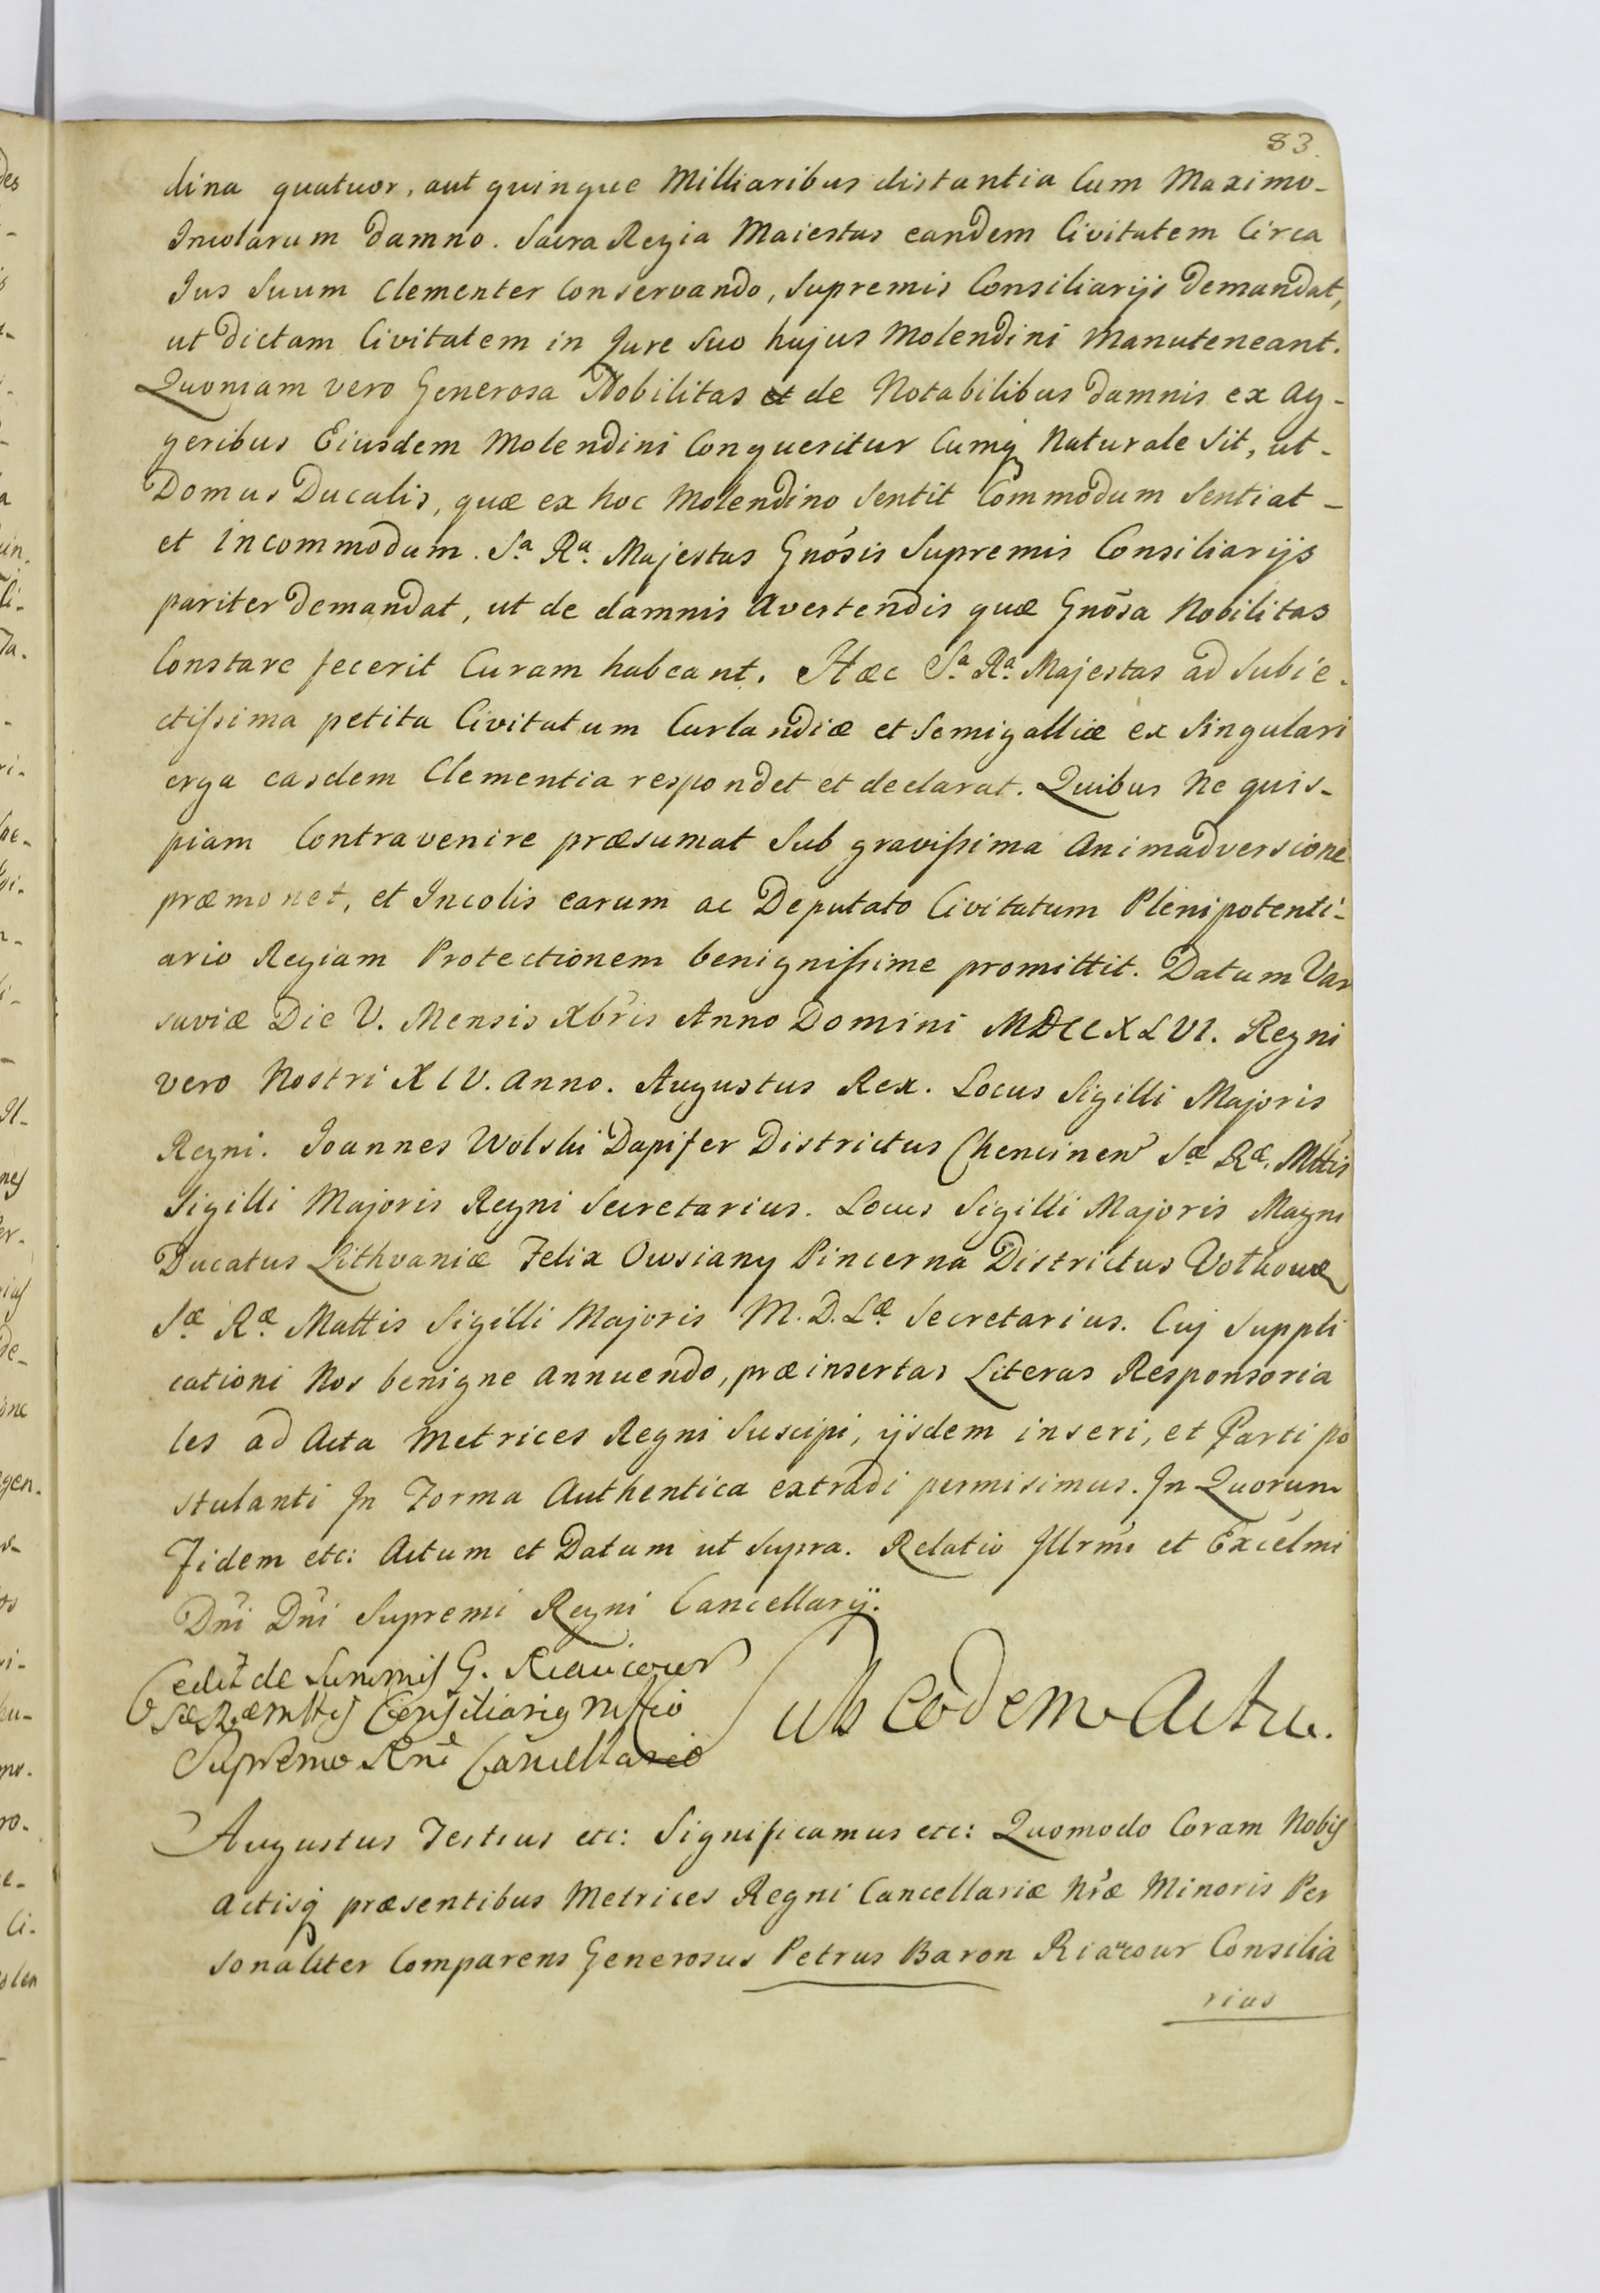 83.
dina quatuor, aut quinque Milliaribus distantia Cum Maximo-
Incolarum damno. Sacra Regia Maiestas eandem Civitatem Circa
Jus Suum Clementer Conservando, Supremis Consiliarijs demandat,
ut dictam Civitatem in Jure Suo hujus Molendini Manuteneant.
Quoniam vero Generosa Nobilitas de Notabilibus damnis ex Ag-
geribus Eiusdem Molendini Conqueritur Cumq Naturale Sit, ut-
Domus Ducalis, quæ ex hoc Molendino Sentit Commodum Sentiat-
et incommodum. Sa. Ra. Majestas Gnósis Supremis Consiliarijs
pariter demandat, ut de damnis avertendis quæ Gnõsa Nobilitas
Constare fecerit Curam habeant. Hæc Sa. Ra. Majestas ad Subie-
ctissima petita Civitatum Curlandiæ et Semigalliæ ex Singulari
erga easdem Clementia respondet et declarat. Quibus Ne quis-
piam Contravenire præsumat Sub gravissima Animadversione
præmonet, et Incolis earum ac Deputato Civitatum Plenipotenti-
ario Regiam Protectionem benignissime promittit. Datum Var
saviæ Die V. Mensis Xbris Anno Domini MDCCXLVI. Regni
vero Nostri XIV. Anno. Augustus Rex. Locus Sigilli Majoris
Regni. Joannes Wolski Dapifer Districtus Chencinen Sæ Ræ. Mttis
Sigilli Majoris Regni Secretarius. Locus Sigilli Majoris Magni
Ducatus Lithvaniæ Felix Owsiany Pincerna Districtus
Sæ Ræ Mattis Sigilli Majoris M. D. Læ Secretarius. Cuj Suppli
cationi Nos benigne annuendo, præinsertas Literas Responsoria
les ad Acta Metrices Regni Suscipi, ijsdem inseri, et Parti po
stulanti In Forma Authentica extradi permisimus. In Quorum
Fidem etc: Actum et Datum ut Supra. Relatio Illrmi et Excelmi
Dni Dni Supremi Regni Cancellarij.
Cedit de Summis G. Riaucour
Sæ Ræ Mttis Consiliario
Supremo Rni Cancellario
Sub eodem Actu.
Augustus Tertius etc: Significamus etc: Quomodo Coram Nobis
Actisq præsentibus Metrices Regni Cancellariæ Nræ Minoris Per
sonaliter Comparens Generosus Petrus Baron Riaucour Consilia
rius